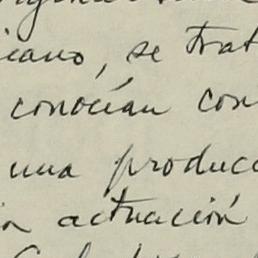 icano, se trat
conocían con
una produc
ón actuación